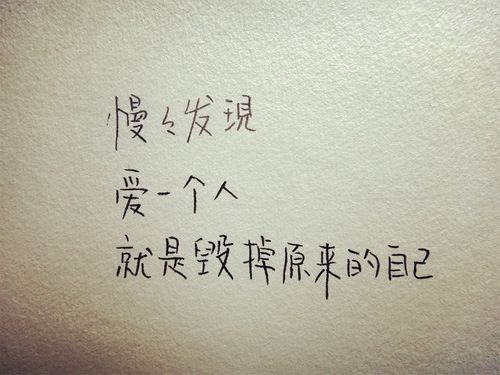 慢々发現
爱一个人
就是毁掉原来的自己